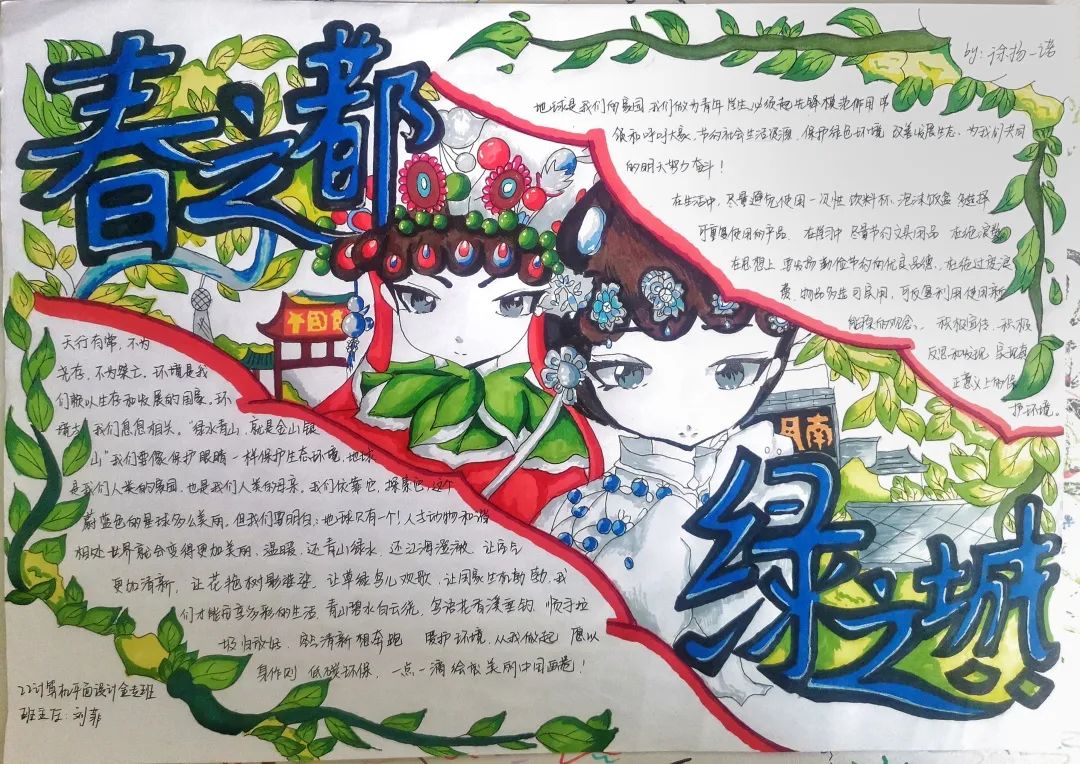 春之都
by: 徐扬一诺
地球是我们的家园 我们做为青年学生必须起先锋模范作用
保和呼吁大家、节约社会生活资源，保护绿色环境，改善发展生态，为我们共同
的明天努力奋斗！
在生活中，尽量避免使用一次性饮料杯、泡沫饭盒 多选择
可重复使用的产品 在学习中 尽量节约文具用品 杜绝浪费
在思想上 要发扬勤俭节约的优良品德，杜绝过度浪
费、物品多选可民用，可反复利用使用新
能源的观念。 积极宣传、积极
反思和发现 实现真
正意义上的保
护环境。
中国
南月
天行有常，不为
尧存，不为桀亡。环境是我
们赖以生存和发展的国家。环
境与我们息息相关。"绿水青山，就是金山银
山"我们要像保护眼睛一样保护生态环境，地球
是我们人类的家园，也是我们人类的母亲。我们依靠它，探索它，这个
蔚蓝色的星球多么美丽，但我们要明白：地球只有一个！人与动物和谐
相处世界就会变得更加美丽、温暖，还青山绿水 还江海澄澈 让空气
更加清新， 让花艳树影婆娑，让草绿鸟儿欢歌，让国家生机勃勃，我
们才能有多彩的生活，青山碧水白云绕，鸟语花香溪垂钓，顺手垃
圾归放好， 空气清新想奔跑 爱护环境，从我做起 愿以
身作则 低碳环保， 一点一滴绘报美丽中国画卷！
22计算机平面设计金专班
班主任：刘菲
绿之城